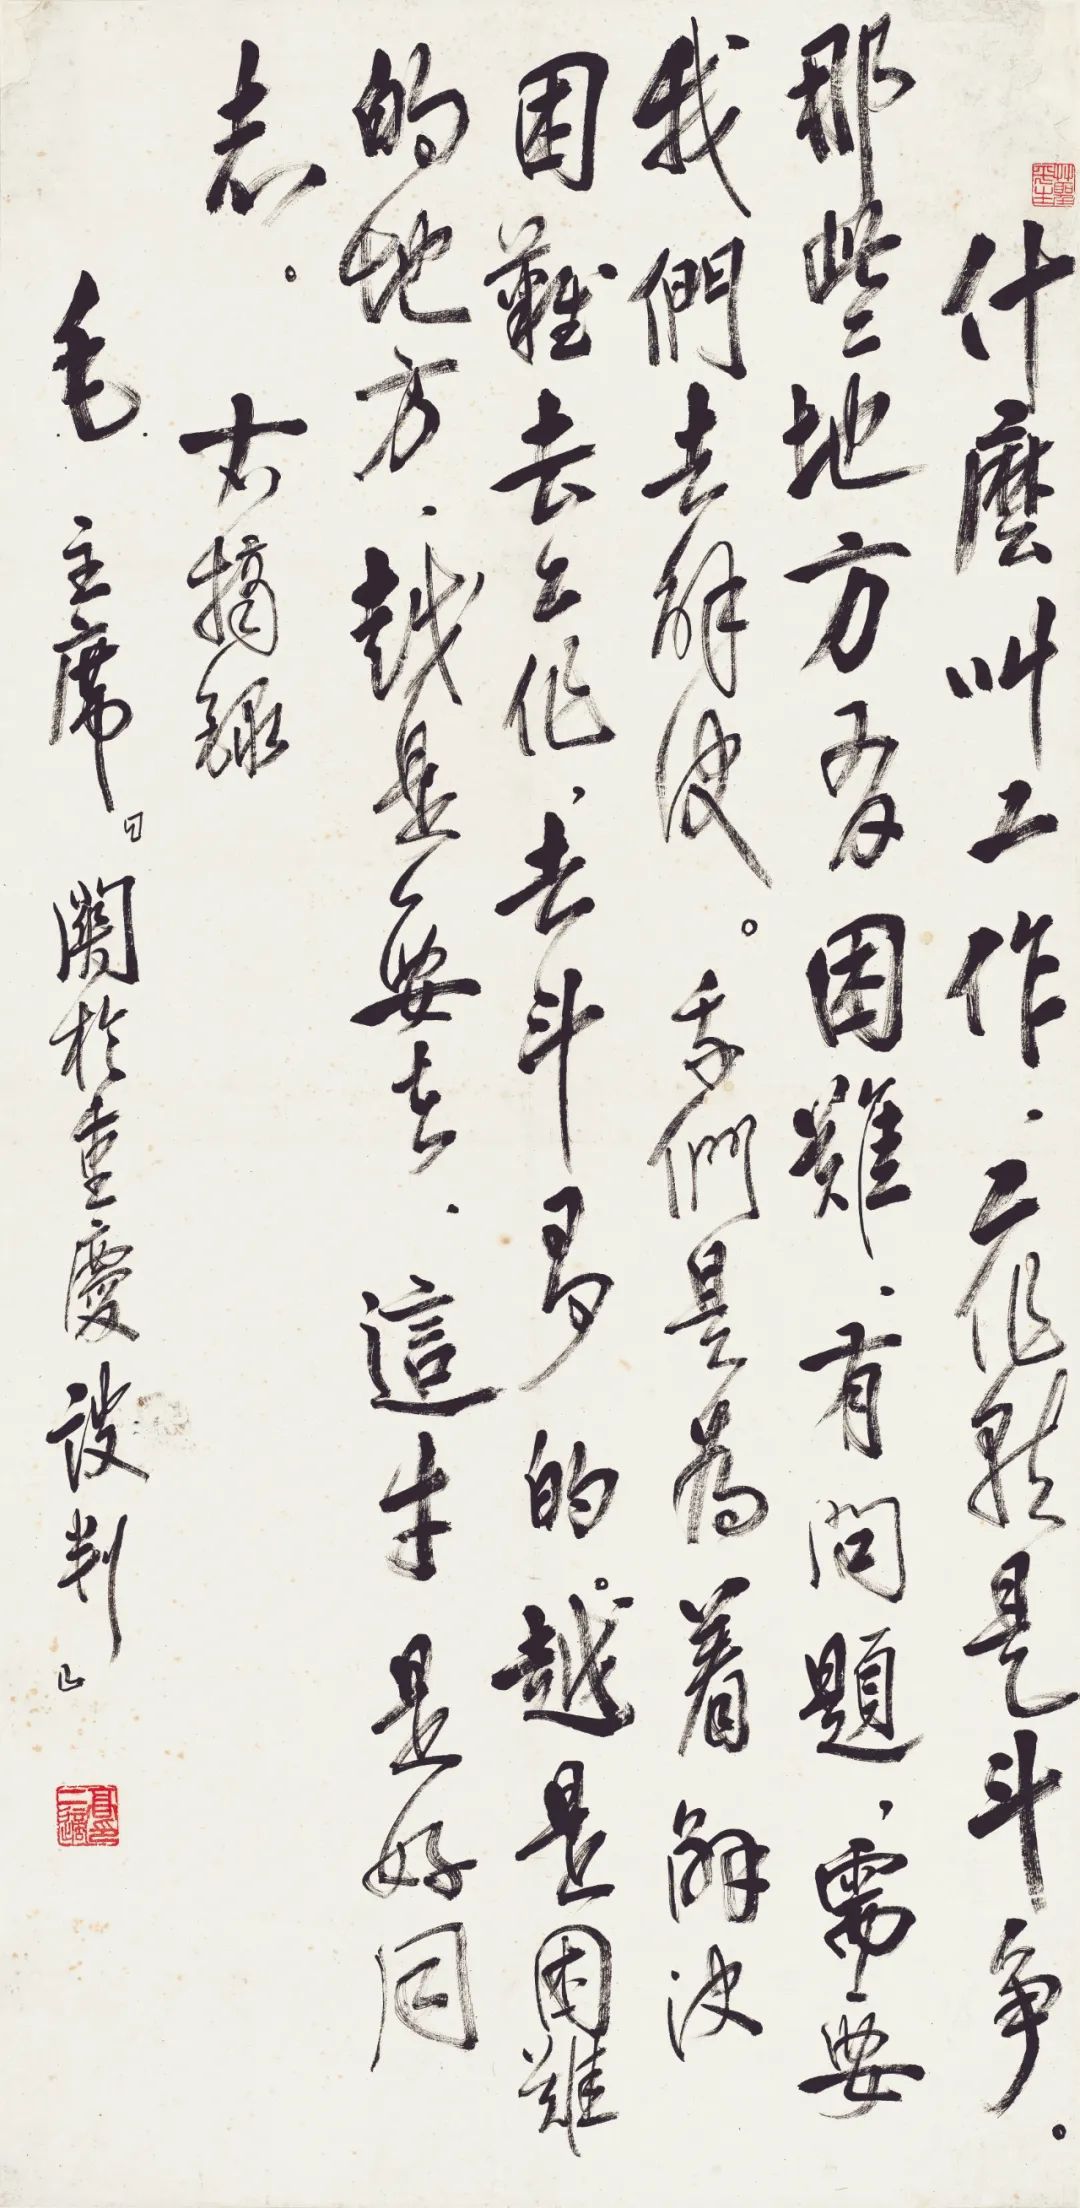 什麽叫工作、工作就是斗争。
那些地方有困難、有問題、需要
我們去解决。我們是為着解决
困難去工作、去斗爭的。越是困難
的地方、越是要去、這才是好同
志。
右摘録
毛主席「關於重慶談判」